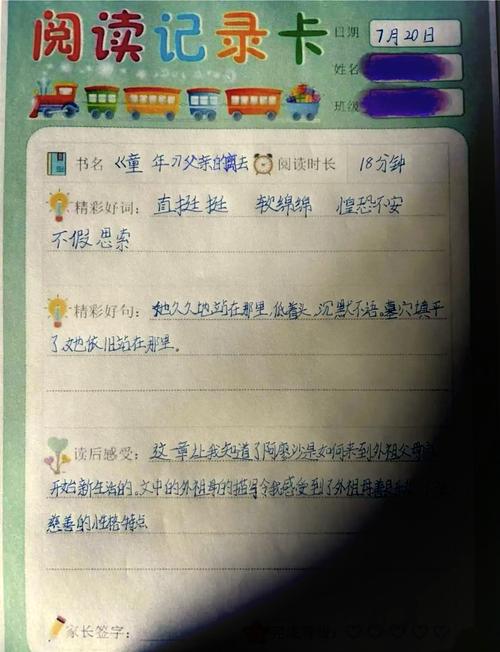 阅读记录卡
日期 7月20日
姓名
班级
书名 《童年》父亲的离去 阅读时长 18分钟
精彩好词: 直挺挺 软绵绵 惶恐不安
不假思索
精彩好句: 她久久地站在那里,低着头,沉默不语。墓穴填平
了,她依旧站在那里。
读后感受: 这章让我知道了阿廖沙是如何来到外祖父母
开始新生活的。文中的外祖母的描写令我感受到了外祖母善良
慈善的性格特点
家长签字: